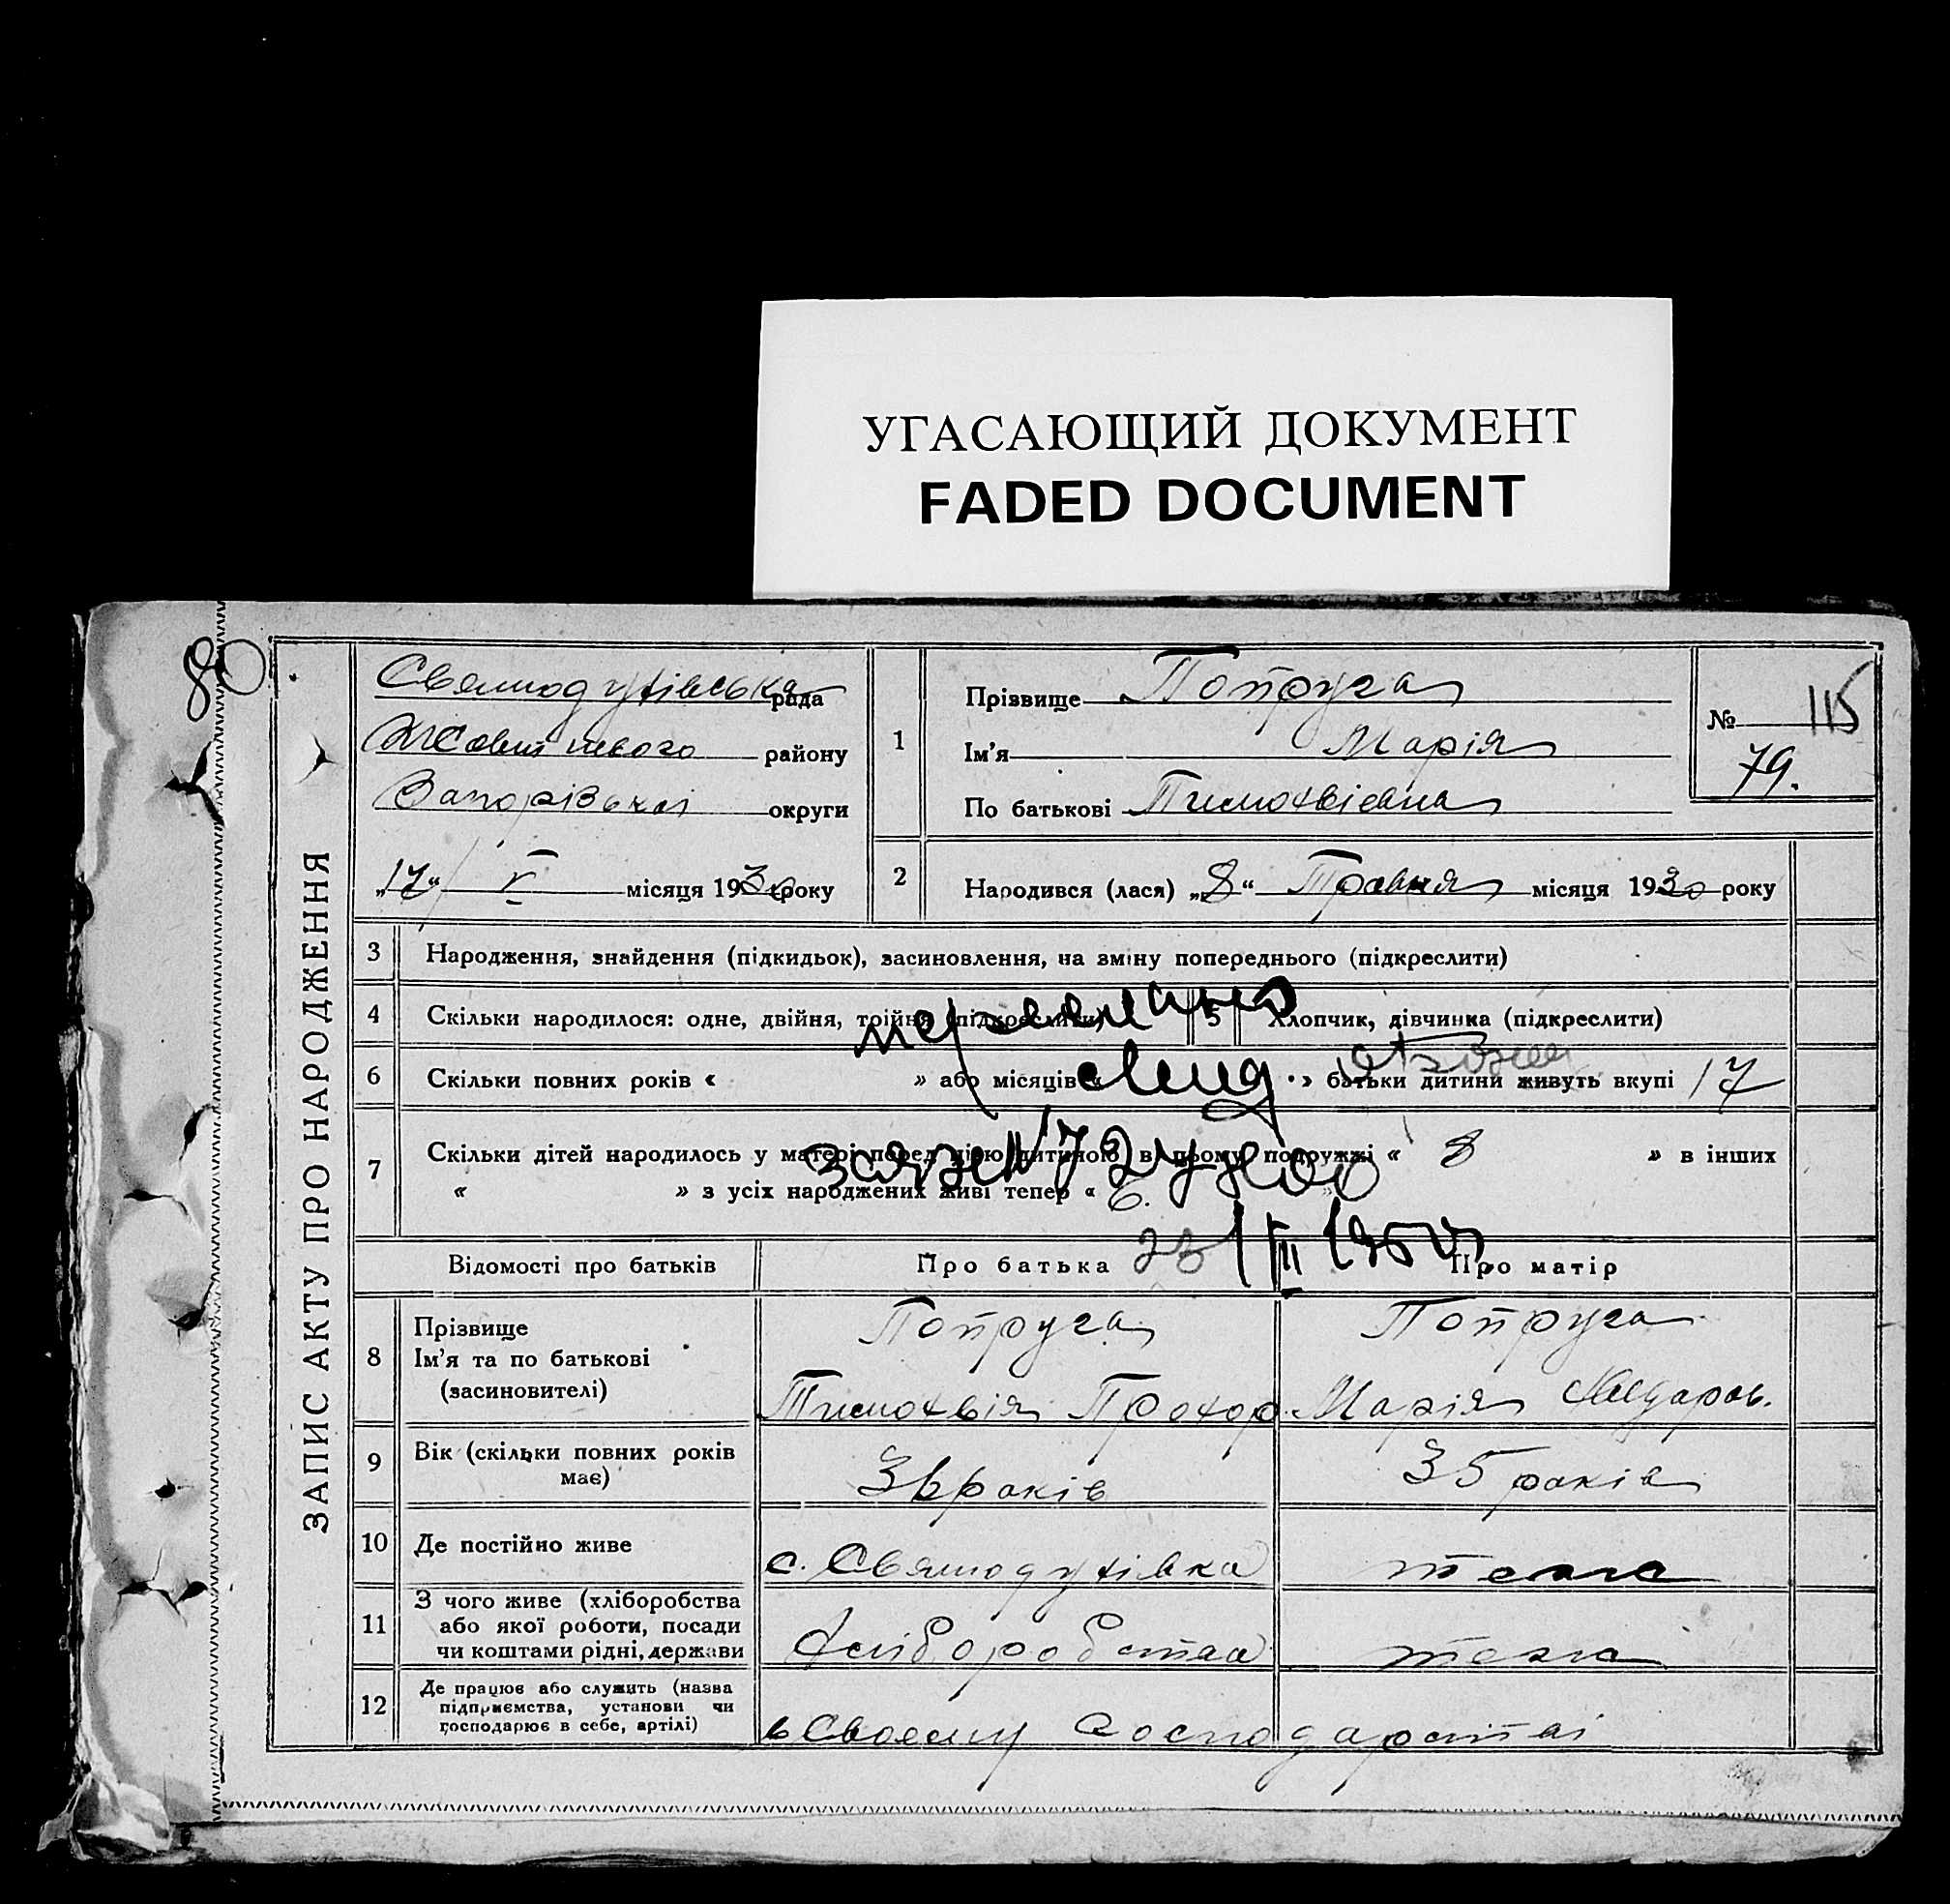 УГАСАЮЩИЙ ДОКУМЕНТ
FADED DOCUMENT
80
ЗАПИС АКТУ ПРО НАРОДЖЕННЯ
Святодухівська рада
Жовтневого району
Запорізької округи
„17“ V місяця 1930 року
1
Прізвище Попруга
Ім'я Марія
По батькові Тимохвієвна
№ 115
79.
2 Народився (лася) „8“ Травня місяця 1930 року
3 Народження, знайдення (підкидьок), засиновлення, на зміну попереднього (підкреслити)
4 Скільки народилося: одне, двійня, трійня (підкреслити) 5 Хлопчик, дівчинка (підкреслити)
6 Скільки повних років « » або місяців « » батьки дитини живуть вкупі 17
7 Скільки дітей народилось у матері перед цією дитиною в цьому подружжі « 8 » в інших
« » з усіх народжених живі тепер « 6.
Відомості про батьків Про батька Про матір
23 III
8 Прізвище
Ім'я та по батькові
(засиновителі)
Попруга
Тимохвія Прохор.
Попруга
Марія
9 Вік (скільки повних років
має)
36 років 35 років
10 Де постійно живе с. Святодухівка теж
11 З чого живе (хліборобства
або якої роботи, посади
чи коштами рідні, держави
Хліборобства теж
12 Де працює або служить (назва
підприємства, установи чи
господарює в себе, артілі)
в Своему Господарстві